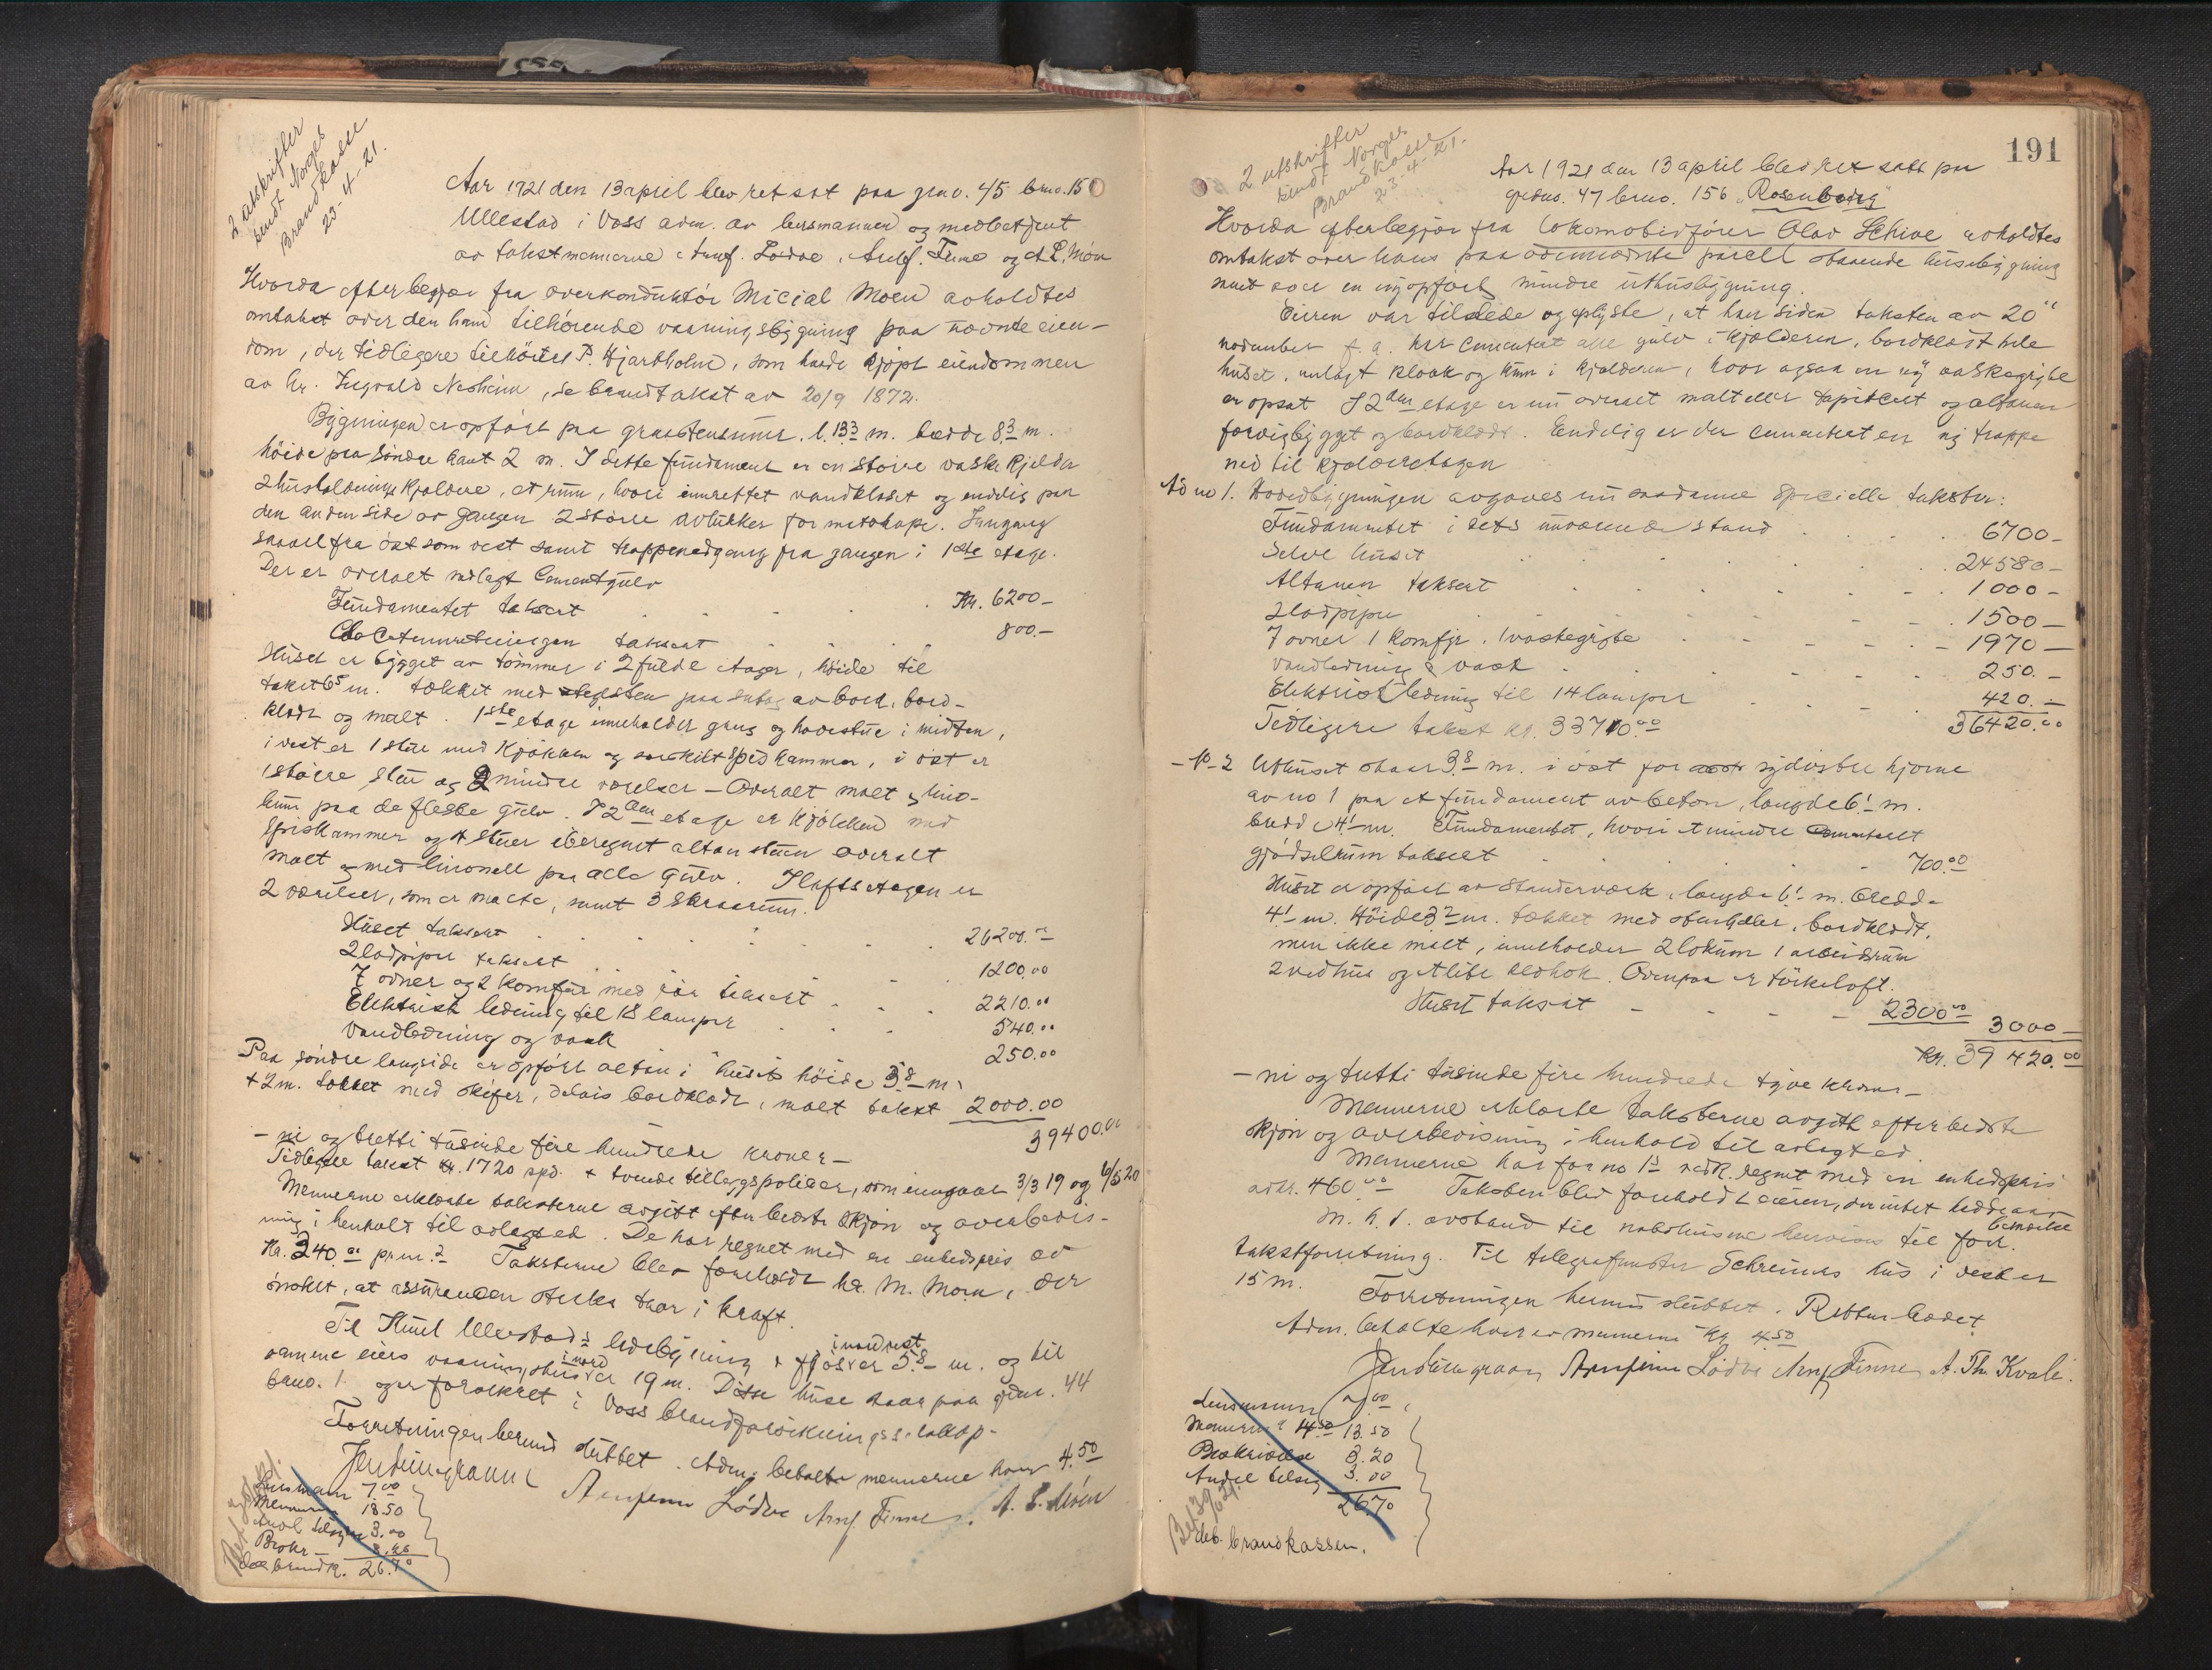 2 utskrifter
sendt Norges
Brandkasse
23-4-21.
Aar 1921 den 13 april blev ret sat paa gno. 45 bno. 15
Ullestad i Voss adm. av lensmannen og medbetjent
av takstmennerne Arnf. Lødve, Arnf. Finne og A L. Moen
Hvorda efter begjær fra overkonduktør Micial Moen avholdtes
omtakst over den ham tilhørende vaaningsbygning paa nævnte eien-
dom, der tidligere tilhørtes P. Hjartholm, som havde kjøpt eiendommen
av hr. Ingvald Nesheim, se brandtakst av 20/9 1872.
Bygningen er opført paa graastensmur. l. 13³ m. bredde 8³ m.
høide paa søndre kant 2 m. I dette fundament er en større vaske kjelder
2 husholdnings kjeldere, et rum, hvori innrettet vandklosett og endelig paa
den anden side av gangen 2 større avlukker for matskape. Inngang
saavel fra øst som vest samt trappenedgang fra gangen i 1ste etage.
Der er overalt nedlagt Cementgulv
Fundamentet taksert . . . . . Kr. 6200-
Closetinnretningen taksert . . . 800.-
Huset er bygget av tømmer i 2 fulde etager, høide til
taket 6⁵ m. tækket med teglsten paa sutag av bord, bord-
klædt og malt. 1ste etage inneholder gang og hovestue i midten,
i vest er 1 stue med kjøkken og særskilt spiskammer, i øst er
1 større stue og 2 mindre værelser - Overalt malt og lino-
leum paa de fleste gulv. I 2den etage er kjøkken med
Spiskammer og 4 stuer iberegnet altan stuen overalt
malt og med linoneum paa alle gulv. I loftsetagen er
2 værelser, som er malte, samt 3 skraarum.
Huset taksert . . . . . 26200.00
2 ladpiper taksert . . . . 1200.00
7 ovner og 2 komfur med rør taksert . . 2210.00
Elektrisk ledning til 18 lamper . . 540.00
Vandledning og vask . . 250.00
Paa søndre langside er opført altan i husets høide 3⁸ m.
+ 2 m. tækket med skifer, delvis bordklædt, malt takst 2000.00
39400.00
- ni og tretti tusinde fire hundrede kroner -
Tidligere takst kr. 1720 spd. + tvende tillægspoliser, som inngaar 3/3 19 og 6/5 20
Mennerne erklærte taksterne avgitt efter bedste skjøn og overbevis-
ning i henhold til avlagt ed. De har regnet med en enhedspris av
Kr. 340.00 pr. m.² Taksterne blev foreholdt hr. M. Moen, der
ønsket, at assuransen straks trær i kraft.
Til Knut Ullestads ladebygning i nordvest + fjøs er 5⁸ m. og til
samme eiers vaaningshus i nord er 19 m. Disse huse staar paa gdno. 44
bno. 1 og er forsikret i Voss brandforsikringsselskap -
Forretningen hermed sluttet. Adm. betalte mennerne hver 4.50
Jens Lindegaard Arnfinn Lødve Arnf. Finne. A. L. Moen
Lensmann 7.00
Mennerne 13.50
Andel tilsyn 3.00
Beskr - 3.20
deb brandk. 26.70
191
2 utskrifter
sendt Norges
Brandkasse
23-4-21.
Aar 1921 den 13 april blev ret satt paa
gardno. 47 brno. 156 "Rosenborg"
Hvorda efter begjær fra lokomobilfører Olav Schive avholdtes
omtakst over hans paa ovennævnte parcell staaende husebygning
samt over en nyopført mindre uthusbygning.
Eieren var tilstede og oplyste, at han siden taksten av 20
november f. a. har cementert alle gulv i kjælderen, bordklædt hele
huset, innlagt kloak og kum i kjælderen, hvor ogsaa en ny vaskegryte
er opsat. I 2den etage er nu overalt malt eller tapisert og altanen
forvigbygget og bordklædt. Endelig er der cementert en ny trappe
ned til kjælderetagen
Ad no 1. Hovedbygningen avgaves nu saadanne specielle takster:
Fundamentet i dets nuværende stand . . . . 6700-
Selve huset . . . . 24580-
Altanen taksert . . . . 1000-
2 ladpiper . . . . 1500-
7 ovner 1 komfyr, 1 vaskegryte . . . . 1970-
Vandledning & vask . . . . 250.-
Elektrisk ledning til 14 lamper . . . . 420.-
Tidligere takst kr. 33710.00 36420.00
- " - 2 Uthuset staar 3⁸ m. i øst for sydøstre hjørne
av no 1 paa et fundament av beton, længde 6¹ m.
bredde 4¹ m. Fundamentet, hvori et mindre cementert
gjødselrum taksert . . . 700.00
Huset er opført av standerværk, længde 6¹ m. bredde
4¹ m. Høide 3² m. tækket med stenheller, bordklædt,
men ikke malt, inneholder 2 lokum 1 arbeidsrum
2 vedhus og et lite Ovenpaa er tørkeloft.
Huset taksert - - - 2300.00 3000-
Kr. 39 420.00
- ni og tretti tusinde fire hundrede tyve kroner -
Mennerne erklærte taksterne avgitt efter bedste
skjøn og overbevisning i henhold til avlagt ed.
Mennerne har for no 1's vedk. regnet med en enhedspris
av kr. 460.00 Taksten blev foreholdt eieren, der intet hadde at bemerke
M. h. t. avstand til nabohusene henvises til forr.
takstforretning. Til telegrafmester Schreiners hus i vest er
15 m.
Forretningen hermed sluttet. Retten hævet.
Adm. betalte hver av mennerne Kr 4.50
Jens Lindegaard Arnfinn Lødve Arnf Finne A. Th Kvale.
Lensmann 7.00
Mennerne 4.50 13.50
Beskrivelse 3.20
Andel tilsyn 3.00
26.70
deb. brandkassen.